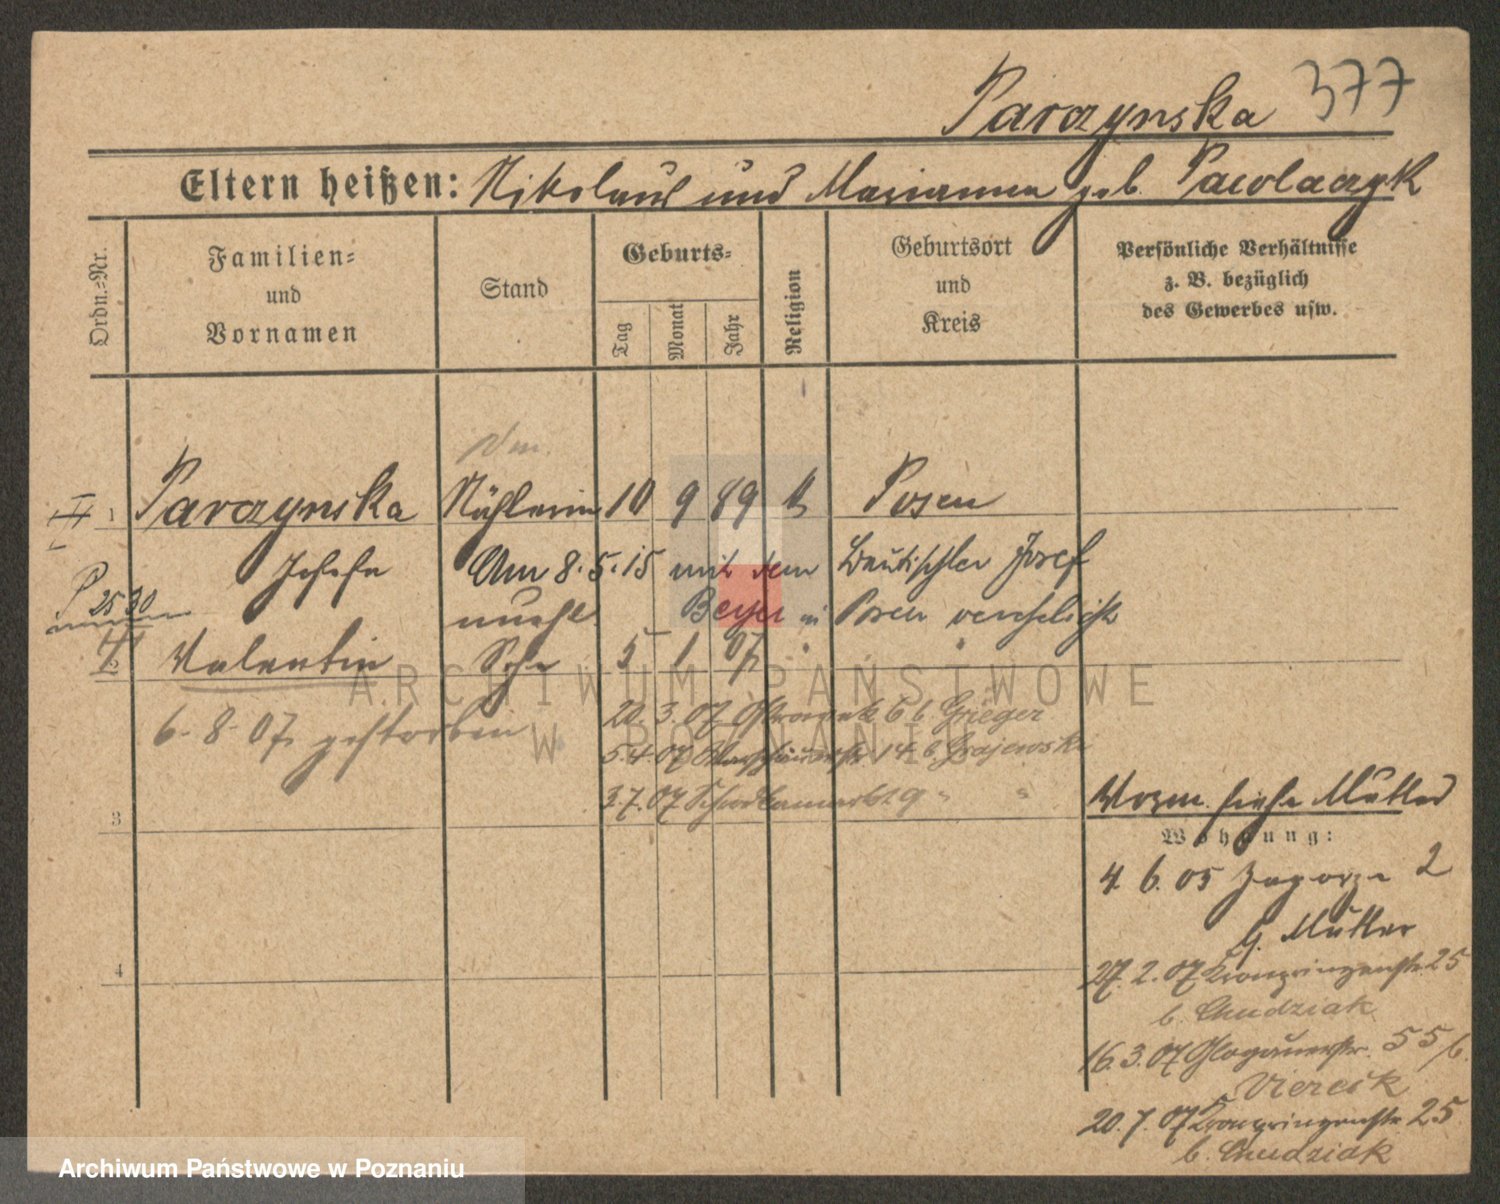 Parczynska 377
Eltern heißen: Nikolaus und Marianna geb. Pawlaczyk
Ordn.-Nr.
Familien-
und
Vornamen
Stand
Geburts-
Tag
Monat
Jahr
Religion
Geburtsort
und
Kreis
Persönliche Verhältnisse
z. B. bezüglich
des Gewerbes usw.
1 Parczynska Nähterin 10 9 89 k Posen
Josefa Am 8.5.15 mit dem Bautischler Josef
P 2530 Beyer in Posen verehelicht
2 Valentin Sohn 5 1 07
6.8.07 gestorben
20.3.07 6 b. Grieger
5.4.07 14 b. Grajewski
3.7.07 9 " "
3
Wozn. siehe Mutter
Wohnung:
4.6.05 Zagorze 2
b. Mutter
27.2.07 Kronprinzenstr. 25
b. Chudziak
16.3.07 Glogauerstr. 55 b.
Viereck
20.7.07 Kronprinzenstr. 25
b. Chudziak
4
ARCHIWUM PAŃSTWOWE
W POZNANIU
Archiwum Państwowe w Poznaniu